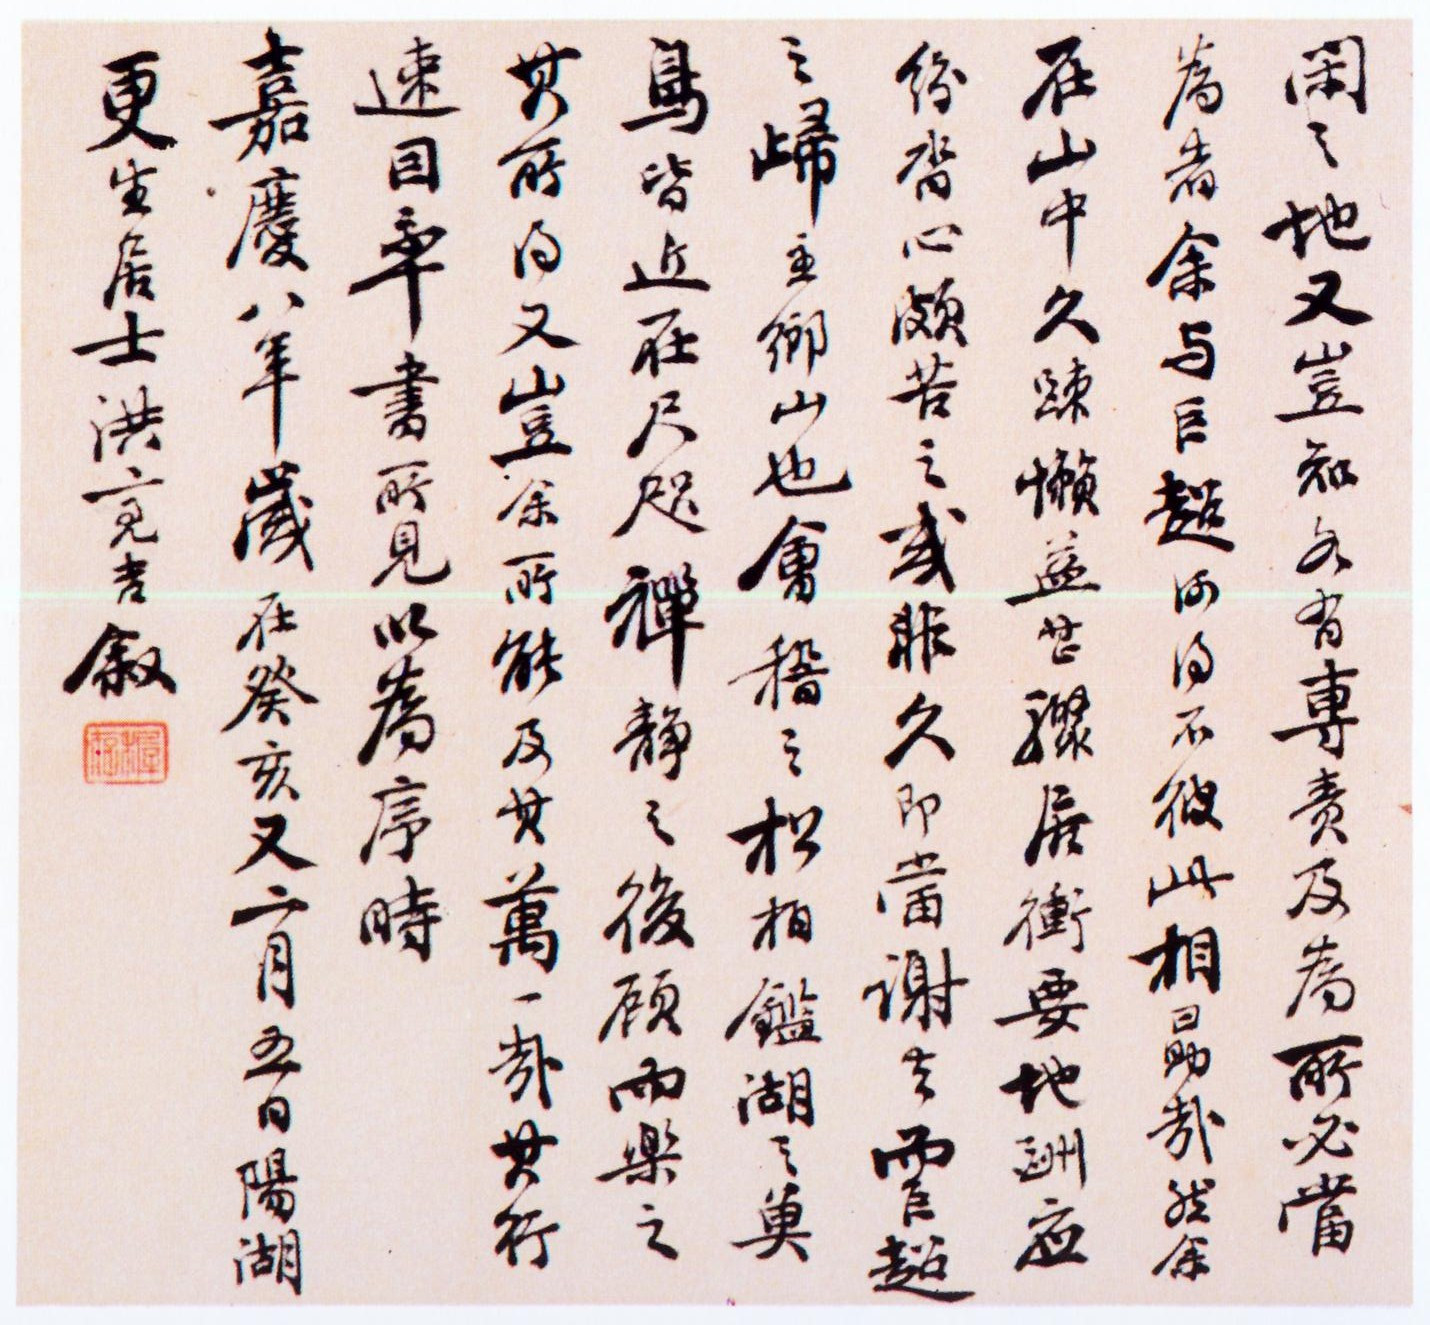 閑之地又豈知各有專責及為所必當
為者余與巨超何得不彼此相勗哉然余
在山中久疎懶益甚驟居衝要地酬應
紛沓心頗苦之或非久即當謝去而巨超
之歸主鄉山也會稽之松柏鑑湖之
鳥皆近在尺咫禪靜之後顧而樂之
其所得又豈余所能及其萬一哉其行
速因率書所見以為序時
嘉慶八年歲在癸亥又二月五日陽湖
更生居士洪亮吉敘